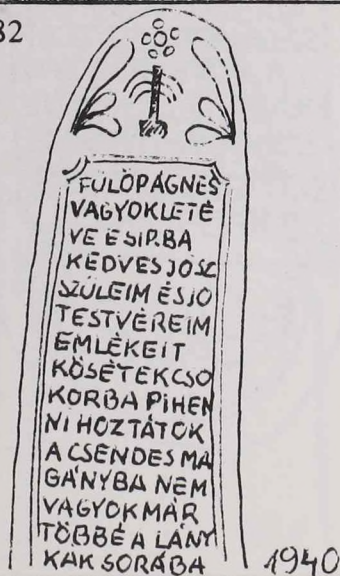 82
FÜLÖP ÁGNES
VAGYOK LETÉ
VE E SIRBA
KEDVES JÓ SZ
SZÜLEIM ÉS JO
TESTVÉREIM
EMLÉKEIT
KÖSÉTEK CSO
KORBA PIHEN
NI HOZTÁTOK
A CSENDES MA
GÁNYBA NEM
VAGYOK MÁR
TÖBBÉ A LÁNY
KAK SORÁBA
1940